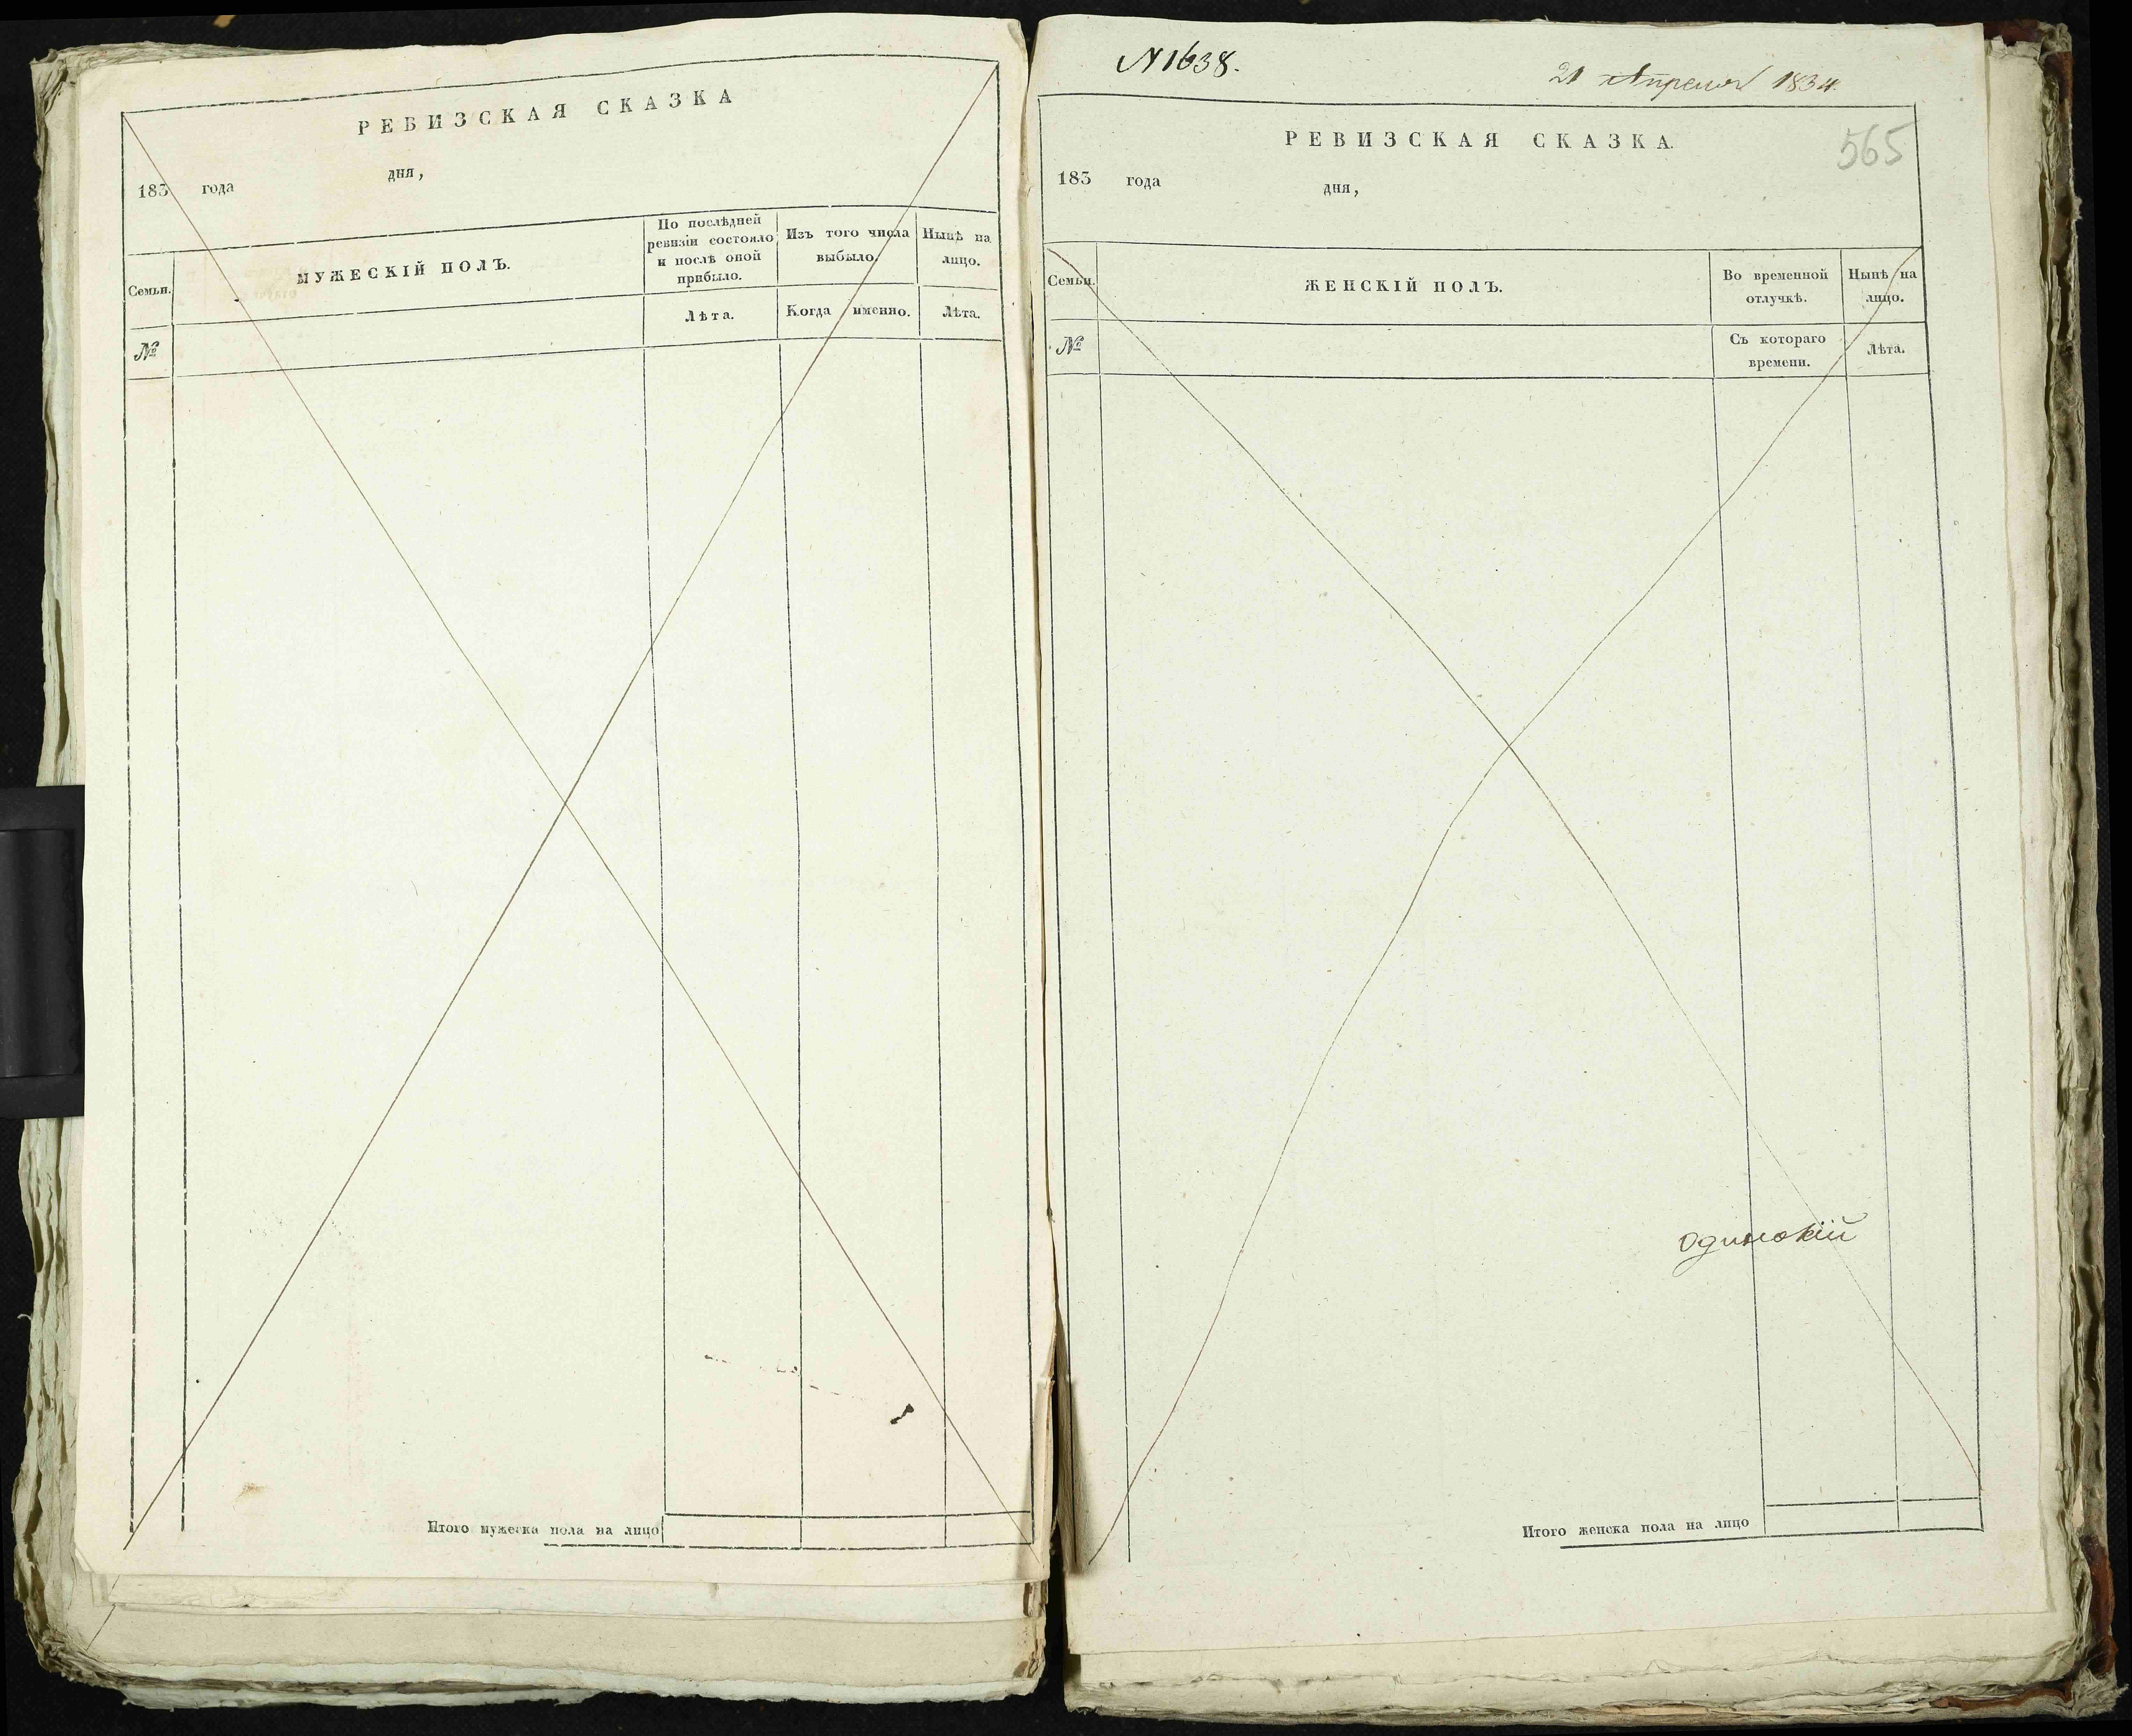 РЕВИЗСКАЯ СКАЗКА
183 года дня,
Семьи.
МУЖЕСКІЙ ПОЛЪ.
По послѣдней
ревизіи состояло
и послѣ оной
прибыло.
Изъ того числа
выбыло.
Нынѣ на
лицо.
Лѣта.
Когда именно.
Лѣта.
№
Итого мужеска пола на лицо
N 1638.
21 Апреля 1834.
565
РЕВИЗСКАЯ СКАЗКА.
183 года дня,
Семьи.
ЖЕНСКІЙ ПОЛЪ.
Во временной
отлучкѣ.
Нынѣ на
лицо.
№
Съ котораго
времени.
Лѣта.
одинокій
Итого женска пола на лицо